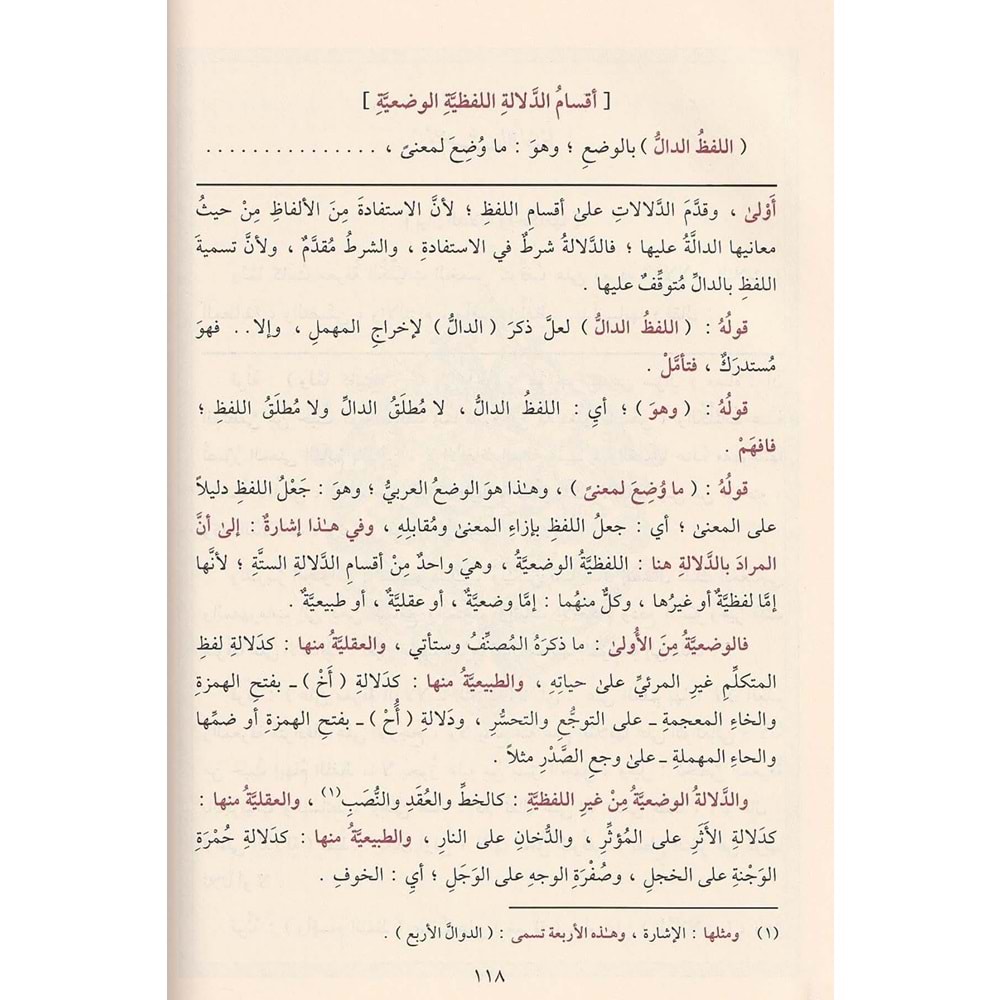 [ أقسامُ الدَّلالةِ اللفظيَّةِ الوضعيَّةِ ]
( اللفظُ الدالُّ ) بالوضعِ ؛ وهوَ : ما وُضِعَ لمعنىً ، . . . . . . . . . . . . . . .
أَوْلىٰ ، وقدَّمَ الدَّلالاتِ علىٰ أقسامِ اللفظِ ؛ لأنَّ الاستفادةَ مِنَ الألفاظِ مِنْ حيثُ
معانيها الدالَّةُ عليها ؛ فالدَّلالةُ شرطٌ في الاستفادةِ ، والشرطُ مُقدَّمٌ ، ولأنَّ تسميةَ
اللفظِ بالدالِّ مُتوقِّفٌ عليها .
قولُهُ : ( اللفظُ الدالُّ ) لعلَّ ذكرَ ( الدالُّ ) لإخراجِ المهملِ ، وإلا.. فهوَ
مُستدرَكٌ ، فتأمَّلْ .
قولُهُ : ( وهوَ ) ؛ أيِ : اللفظُ الدالُّ ، لا مُطلَقُ الدالِّ ولا مُطلَقُ اللفظِ ؛
فافهَمْ .
قولُهُ : ( ما وُضِعَ لمعنىً ) ، وهـٰذا هوَ الوضعُ العربيُّ ؛ وهوَ : جَعْلُ اللفظِ دليلاً
على المعنىٰ ؛ أي : جعلُ اللفظِ بإزاءِ المعنىٰ ومُقابلِهِ ، وفي هـٰذا إشارةٌ : إلىٰ أنَّ
المرادَ بالدَّلالةِ هنا : اللفظيَّةُ الوضعيَّةُ ، وهيَ واحدٌ مِنْ أقسامِ الدَّلالةِ الستَّةِ ؛ لأنَّها
إمَّا لفظيَّةٌ أو غيرُها ، وكلٌّ منهُما : إمَّا وضعيَّةٌ ، أو عقليَّةٌ ، أو طبيعيَّةٌ .
فالوضعيَّةُ مِنَ الأُولىٰ : ما ذكرَهُ المُصنِّفُ وستأتي ، والعقليَّةُ منها : كدَلالةِ لفظِ
المتكلِّمِ غيرِ المرئيِّ علىٰ حياتِهِ ، والطبيعيَّةُ منها : كدَلالةِ ( أَخْ ) ـ بفتحِ الهمزةِ
والخاءِ المعجمةِ ـ على التوجُّعِ والتحسُّرِ ، ودَلالةِ ( أُحْ ) ـ بفتحِ الهمزةِ أو ضمِّها
والحاءِ المهملةِ ـ علىٰ وجعِ الصَّدْرِ مثلاً .
والدَّلالةُ الوضعيَّةُ مِنْ غيرِ اللفظيَّةِ : كالخطِّ والعُقَدِ والنُّصَبِ(١) ، والعقليَّةُ منها :
كدَلالةِ الأَثَرِ على المُؤثِّرِ ، والدُّخانِ على النارِ ، والطبيعيَّةُ منها : كدَلالةِ حُمْرَةِ
الوَجْنةِ على الخجلِ ، وصُفْرَةِ الوجهِ على الوَجَلِ ؛ أيِ : الخوفِ .
(١) ومثلها : الإشارة ، وهـٰذه الأربعة تسمى : ( الدوالَّ الأربع ) .
١١٨